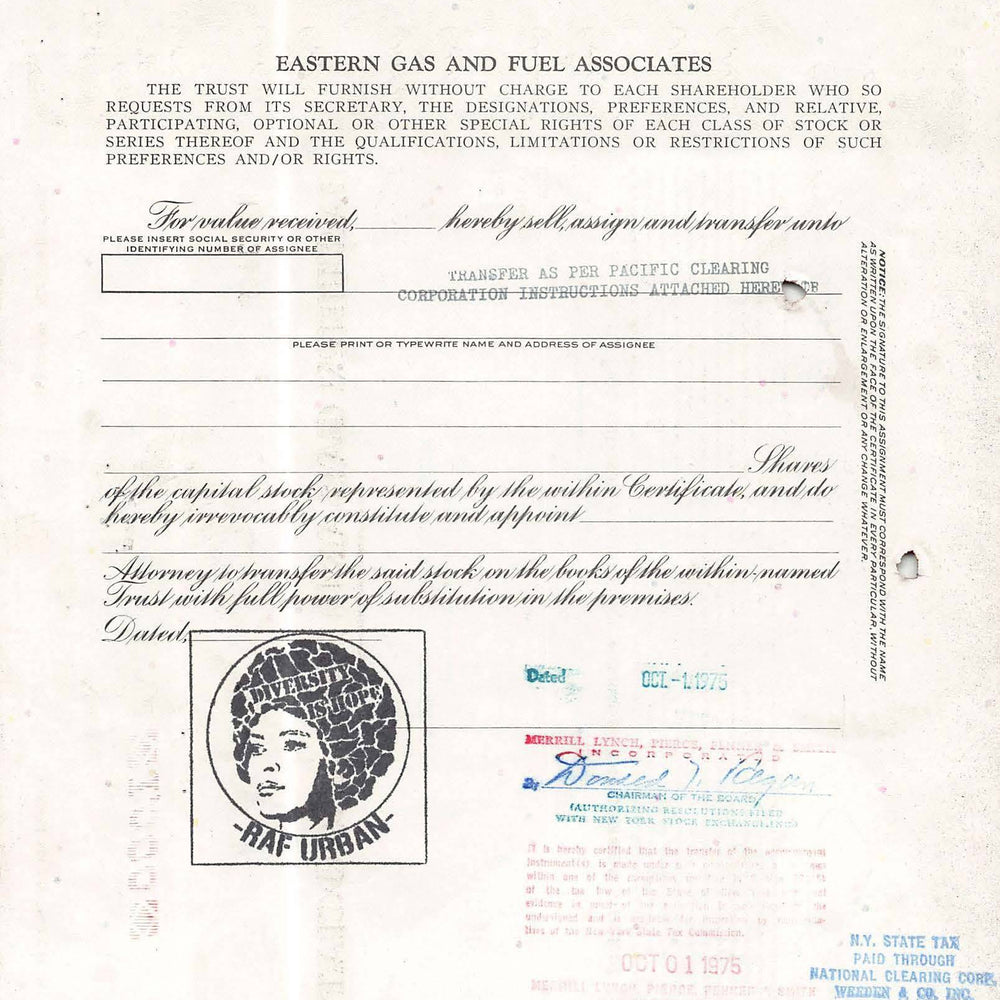 EASTERN GAS AND FUEL ASSOCIATES
THE TRUST WILL FURNISH WITHOUT CHARGE TO EACH SHAREHOLDER WHO SO
REQUESTS FROM ITS SECRETARY, THE DESIGNATIONS, PREFERENCES, AND RELATIVE,
PARTICIPATING, OPTIONAL OR OTHER SPECIAL RIGHTS OF EACH CLASS OF STOCK OR
SERIES THEREOF AND THE QUALIFICATIONS, LIMITATIONS OR RESTRICTIONS OF SUCH
PREFERENCES AND/OR RIGHTS.
For value received, hereby sell, assign and transfer unto
PLEASE INSERT SOCIAL SECURITY OR OTHER
IDENTIFYING NUMBER OF ASSIGNEE
TRANSFER AS PER PACIFIC CLEARING
CORPORATION INSTRUCTIONS ATTACHED
PLEASE PRINT OR TYPEWRITE NAME AND ADDRESS OF ASSIGNEE
Shares
of the capital stock represented by the within Certificate, and do
hereby irrevocably constitute and appoint
Attorney to transfer the said stock on the books of the within-named
Trust with full power of substitution in the premises.
Dated,
NOTICE: THE SIGNATURE TO THIS ASSIGNMENT MUST CORRESPOND WITH THE NAME
AS WRITTEN UPON THE FACE OF THE CERTIFICATE IN EVERY PARTICULAR, WITHOUT
ALTERATION OR ENLARGEMENT OR ANY CHANGE WHATEVER.
DIVERSITY
IS HOPE
-RAF URBAN-
Dated OCT -1 1975
MERRILL LYNCH, PIERCE, FENNER & SMITH
INCORPORATED
By Donald T. Regan
CHAIRMAN OF THE BOARD
(AUTHORIZING RESOLUTIONS FILED
WITH NEW YORK STOCK EXCHANGE, INC.)
It is hereby certified that the transfer of the
instrument(s) is made under
within one of the
of the tax law of the State of
evidence
undersigned and is
tives of the New York State Tax Commission.
OCT 01 1975
MERRILL LYNCH, PIERCE, FENNER & SMITH
N.Y. STATE TAX
PAID THROUGH
NATIONAL CLEARING CORP.
WEEDEN & CO. INC.